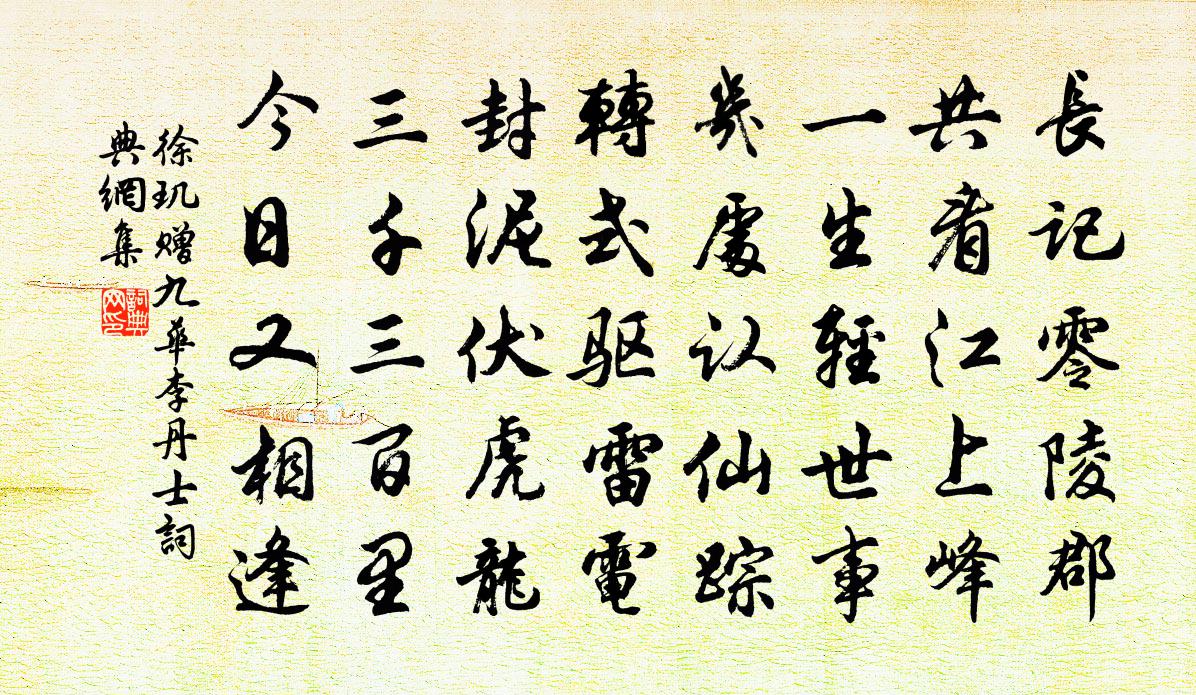 長記零陵郡
共看江上峰
一生輕世事
幾處认仙踪
轉式驱雷電
封泥伏虎龍
三千三百里
今日又相逢
徐玑赠九華李丹士詞
典網集
詞典
网印